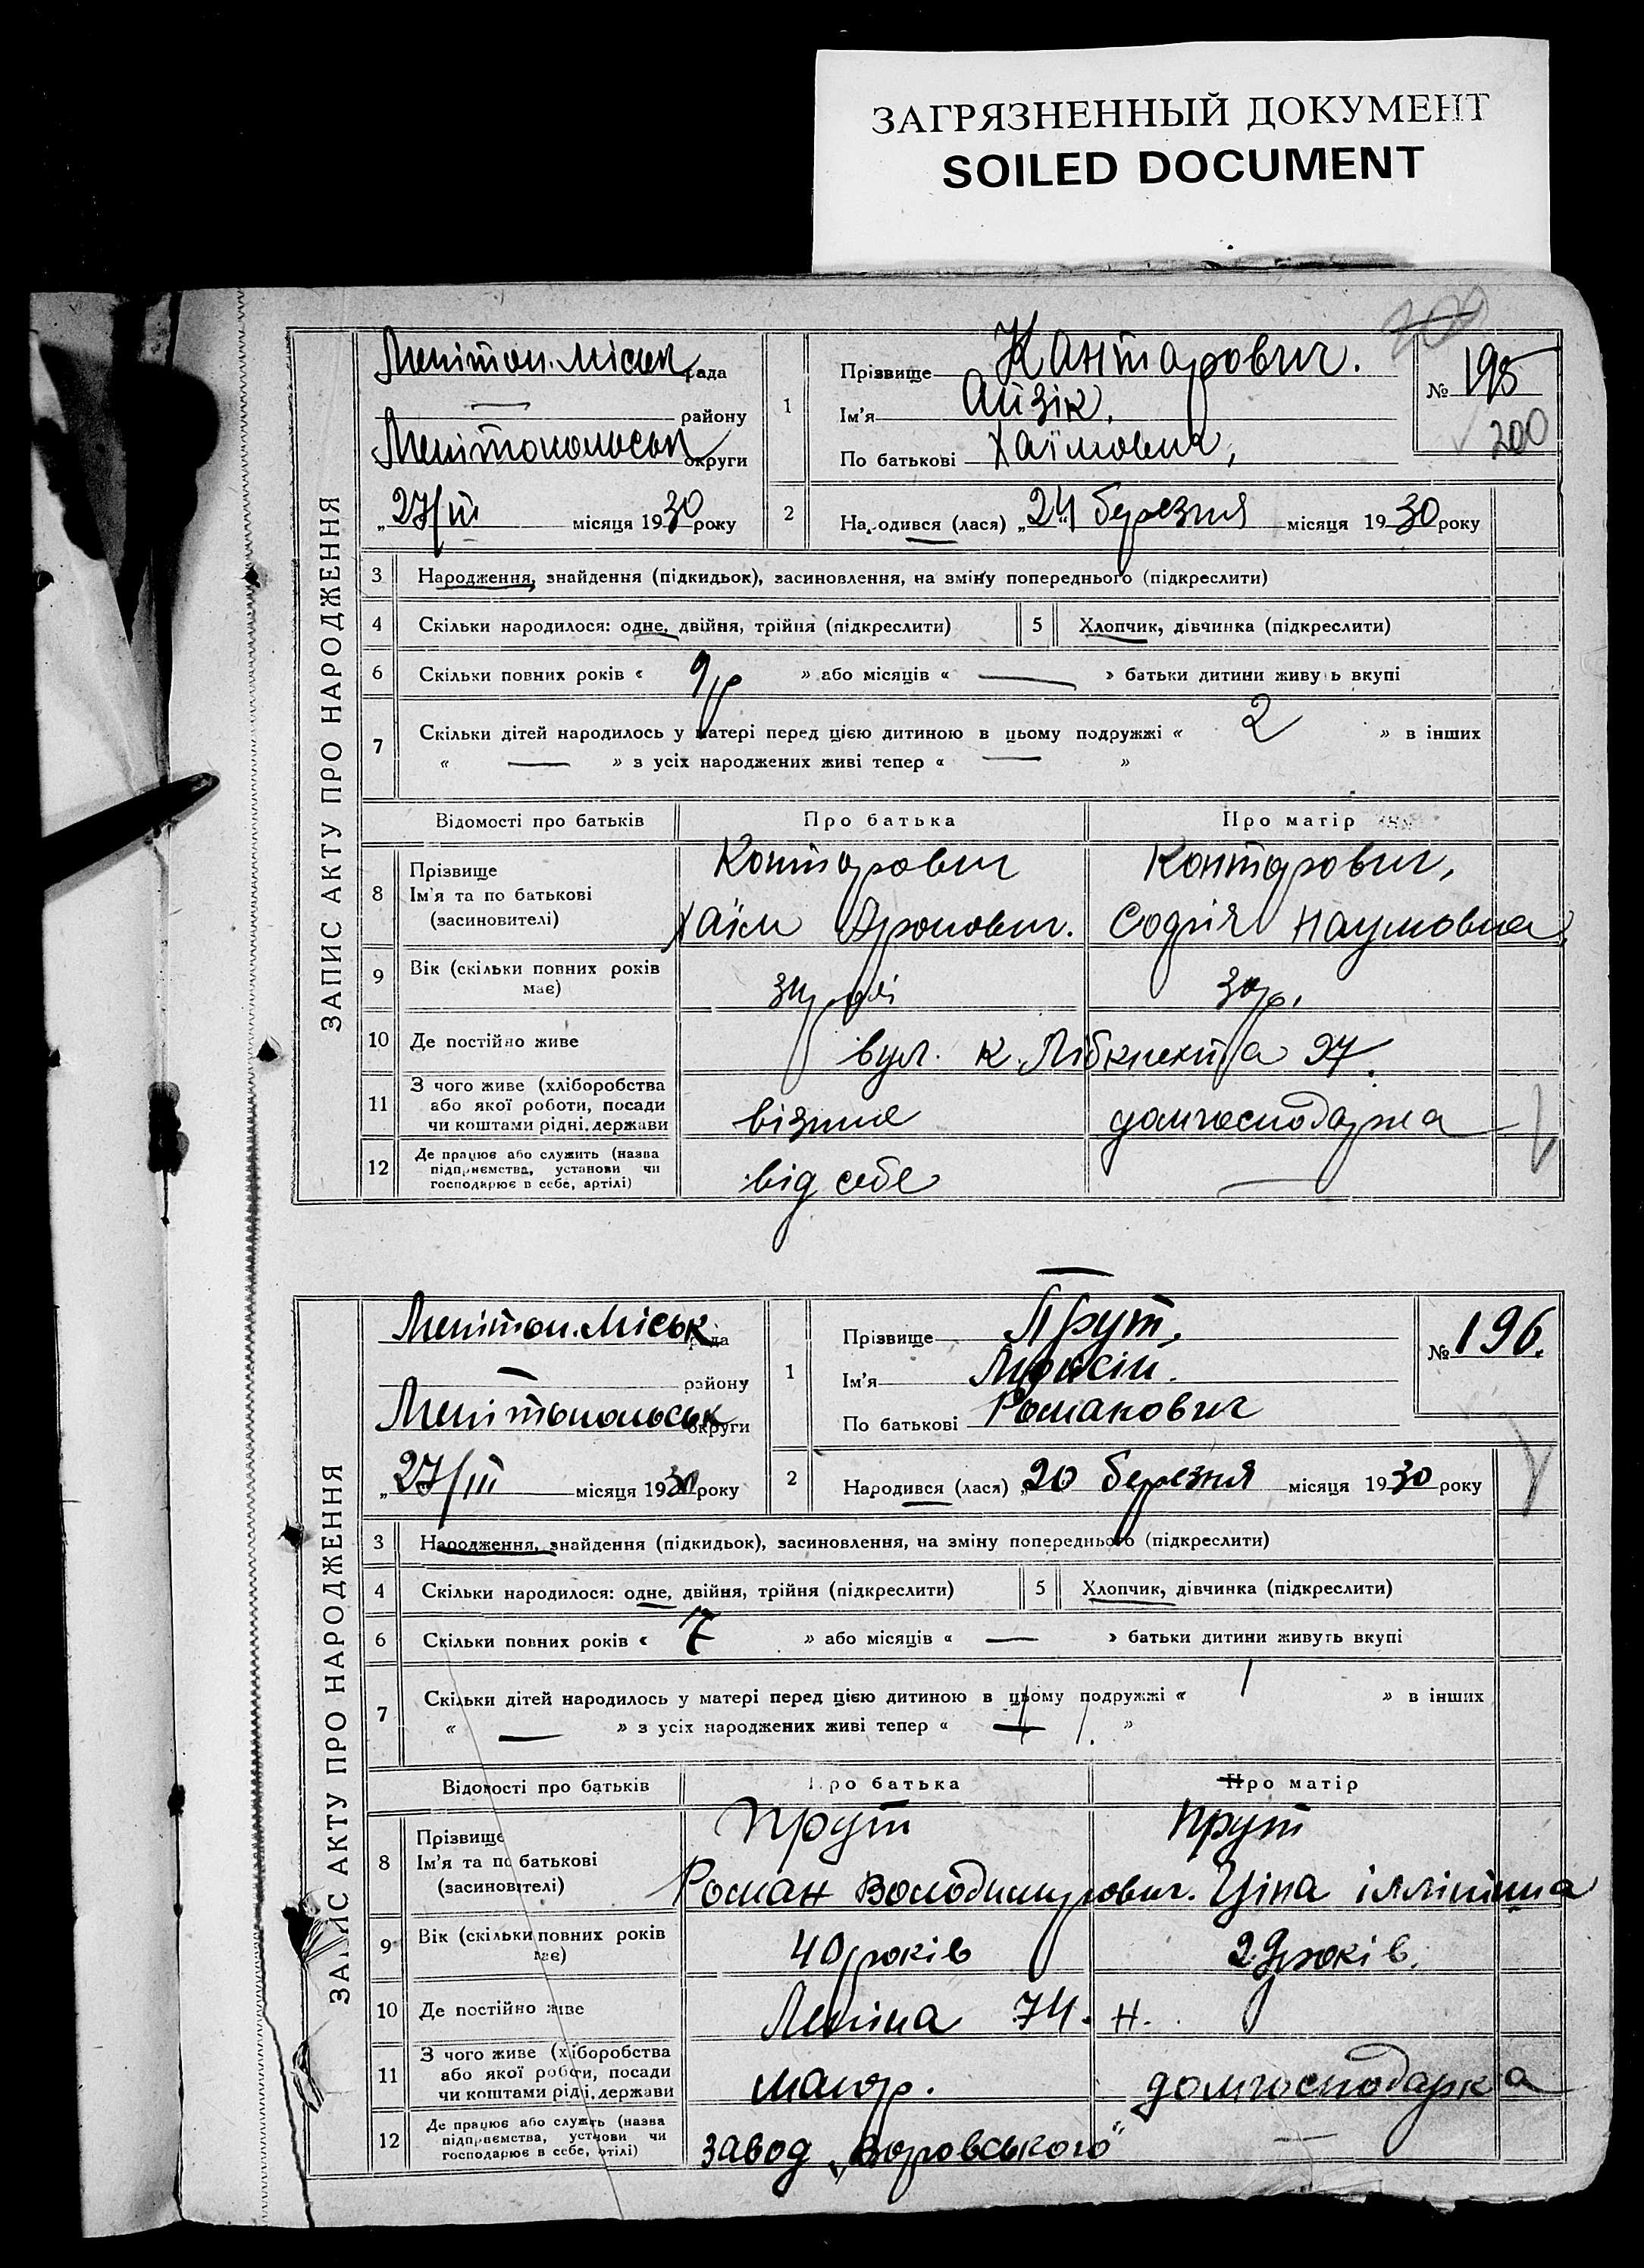 ЗАГРЯЗНЕННЫЙ ДОКУМЕНТ
SOILED DOCUMENT
200
ЗАПИС АКТУ ПРО НАРОДЖЕННЯ
Меліtoп. міськ рада
району
Мелітопольськ округи
„27/III місяця 1930 року
1
Прізвище Кантарович.
Ім'я Айзік,
По батькові Хаїмович,
№ 195
200
2
Народився (лася) „24 березня місяця 1930 року
3 Народження, знайдення (підкидьок), засиновлення, на зміну попереднього (підкреслити)
4 Скільки народилося: одне, двійня, трійня (підкреслити) 5 Хлопчик, дівчинка (підкреслити)
6 Скільки повних років « 9 р » або місяців « — » батьки дитини живуть вкупі
7 Скільки дітей народилось у матері перед цією дитиною в цьому подружжі « 2 » в інших
« — » з усіх народжених живі тепер « — »
Відомості про батьків Про батька Про матір
8 Прізвище Контарович Контарович,
Ім'я та по батькові
(засиновителі) Хаїм Аронович. Софія Наумовна,
9 Вік (скільки повних років
має) 34 30р.
10 Де постійно живе вул. К. Лібкнехта 97.
11 З чого живе (хліборобства
або якої роботи, посади
чи коштами рідні, держави візник домгосподарка
12 Де працює або служить (назва
підприємства, установи чи
господарює в себе, артілі) від себе —
ЗАПИС АКТУ ПРО НАРОДЖЕННЯ
Мелітоп. міськ рада
— району
Мелітопольськ округи
„27/III місяця 1930 року
1
Прізвище Прут.
Ім'я
По батькові Романович
№ 196.
2
Народився (лася) „20 березня місяця 1930 року
3 Народження, знайдення (підкидьок), засиновлення, на зміну попереднього (підкреслити)
4 Скільки народилося: одне, двійня, трійня (підкреслити) 5 Хлопчик, дівчинка (підкреслити)
6 Скільки повних років « 7 » або місяців « — » батьки дитини живуть вкупі
7 Скільки дітей народилось у матері перед цією дитиною в цьому подружжі « 1 » в інших
« — » з усіх народжених живі тепер « 1 »
Відомості про батьків Про батька Про матір
8 Прізвище Прут Прут
Ім'я та по батькові
(засиновителі) Роман Володимирович. Ціпа
9 Вік (скільки повних років
має) 40 років 29 років.
10 Де постійно живе Леніна 74. н.
11 З чого живе (хліборобства
або якої роботи, посади
чи коштами рідні, держави домгосподарка
12 Де працює або служить (назва
підприємства, установи чи
господарює в себе, артілі) завод „Воровського" —